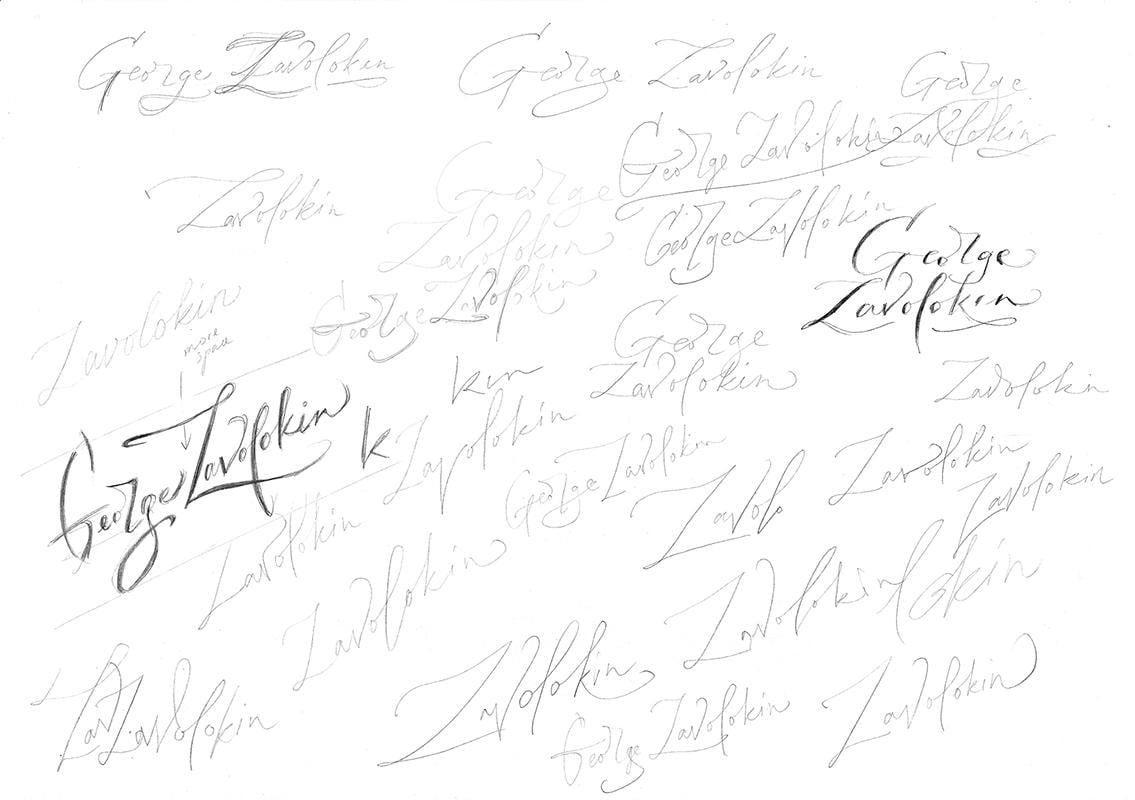 George Zavolokin
George Zavolokin
George
Zavolokin
George Zavolokin
Zavolokin
George
Zavolokin
George Zavolokin
George
Zavolokin
George Zavolokin
Zavolokin
more
space
George
Zavolokin
Zavolokin
kin
k
George Zavolokin
Zavolokin
George Zavolokin
Zavolo
Zavolokin
Zavolokin
Zavolokin
Zavolokin
Zavolokin
lokin
Zav
Zavolokin
Zavolokin
George Zavolokin
Zavolokin